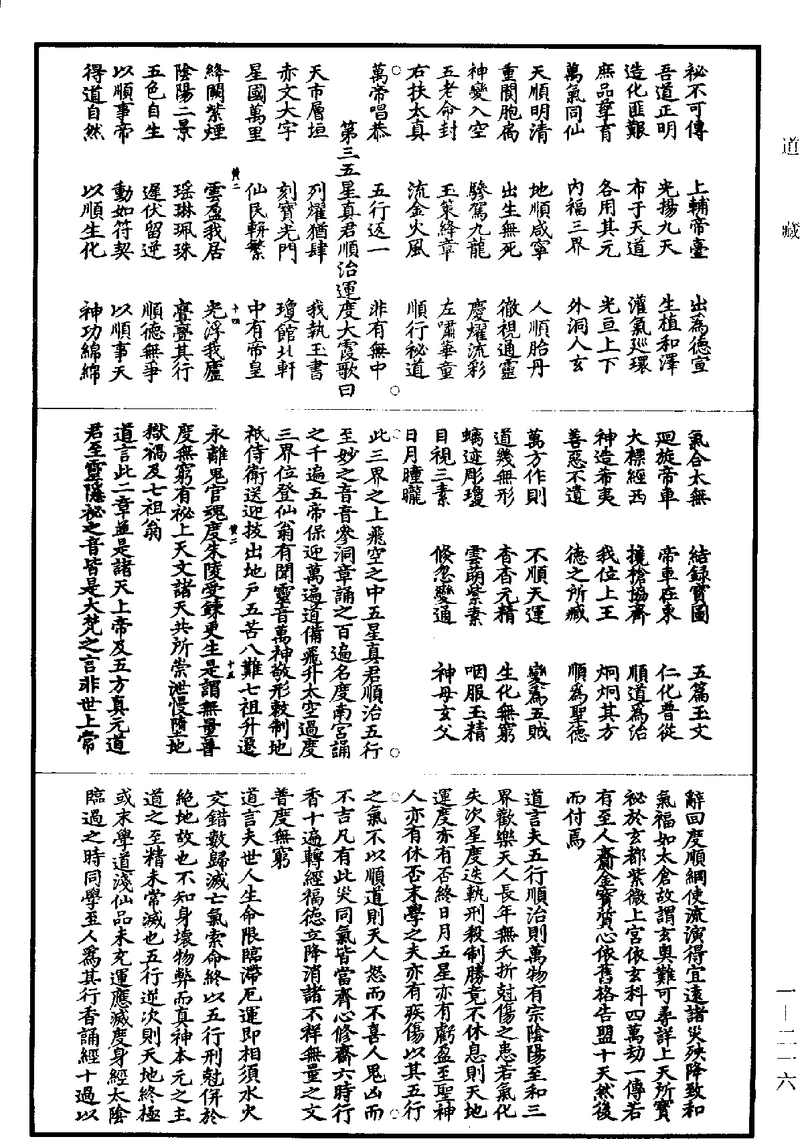 道藏
祕不可傳　上輔帝臺　出為德宣
吾道正明　光揚九天　生植和澤
造化匪艱　布于天道　灌氣巡環
庶品孳育　各用其元　光亘上下
萬氣同仙　內福三界　外洞人玄
天順明清　地順咸寧　人順胎丹
重關胞扃　出生無死　徹視通靈
神變入空　驂駕九龍　慶燿流彩
五老命封　玉策絳章　左嘯華童
右扶太真　流金火風　順行祕道
萬帝唱恭　五行返一　非有無中
第三五星真君順治運度大霞歌曰
天市層垣　列燿猶肆　我執玉書
赤文大字　刻寶光門　瓊館北軒
星國萬里　仙民輧繁　中有帝皇
黃二　十四
絳闕紫煙　雲盈我居　光浮我廬
陰陽二景　瑤琳珮珠　亹亹其行
五色自生　遲伏留逆　順德無爭
以順事帝　動如符契　以順事天
得道自然　以順生化　神功綿綿
氣合太無　結錄寶圖　五篇玉文
迴旋帝車　帝車在東　仁化普從
大標經西　攙槍協齊　順道為治
神造希夷　我位上王　炯炯其方
善惡不遺　德之所臧　順為聖德
萬方作則　不順天運　變為五賊
道幾無形　杳杳元精　生化無窮
螭迹彫瓊　雲萌紫素　咽服玉精
目視三素　倏忽變通　神母玄父
日月瞳矓
此三界之上飛空之中五星真君順治五行
至妙之音音參洞章誦之百遍名度南宮誦
之千遍五帝保迎萬遍道備飛升太空過度
三界位登仙翁有聞靈音萬神敬形敕制地
祇侍衛送迎拔出地戶五苦八難七祖升遷
黃二　十五
永離鬼官魂度朱陵受鍊更生是謂無量普
度無窮有祕上天文諸天共所崇泄慢墮地
獄禍及七祖翁
道言此二章並是諸天上帝及五方真元道
君至靈隱祕之音皆是大梵之言非世上常
辭回度順綱使流演得宜遠諸災殃降致和
氣福如太倉故謂玄奧難可尋詳上天所寶
祕於玄都紫微上宮依玄科四萬劫一傳若
有至人齎金寶質心依舊格告盟十天然後
而付焉
道言夫五行順治則萬物有宗陰陽至和三
界歡樂天人長年無夭折尅傷之患若氣化
失次星度迭執刑殺制勝竟不休息則天地
運度亦有否終日月五星亦有虧盈至聖神
人亦有休否末學之夫亦有疾傷以其五行
之氣不以順道則天人怒而不喜人鬼凶而
不吉凡有此災同氣皆當齊心修齋六時行
香十遍轉經福德立降消諸不祥無量之文
普度無窮
道言夫世人生命限臨滯厄運即相須水火
交錯數歸滅亡氣索命終以五行刑尅併於
絶地故也不知身壞物弊而真神本元之主
道之至精未常滅也五行逆次則天地終極
或末學道淺仙品未充運應滅度身經太陰
臨過之時同學至人為其行香誦經十過以
一—二一六